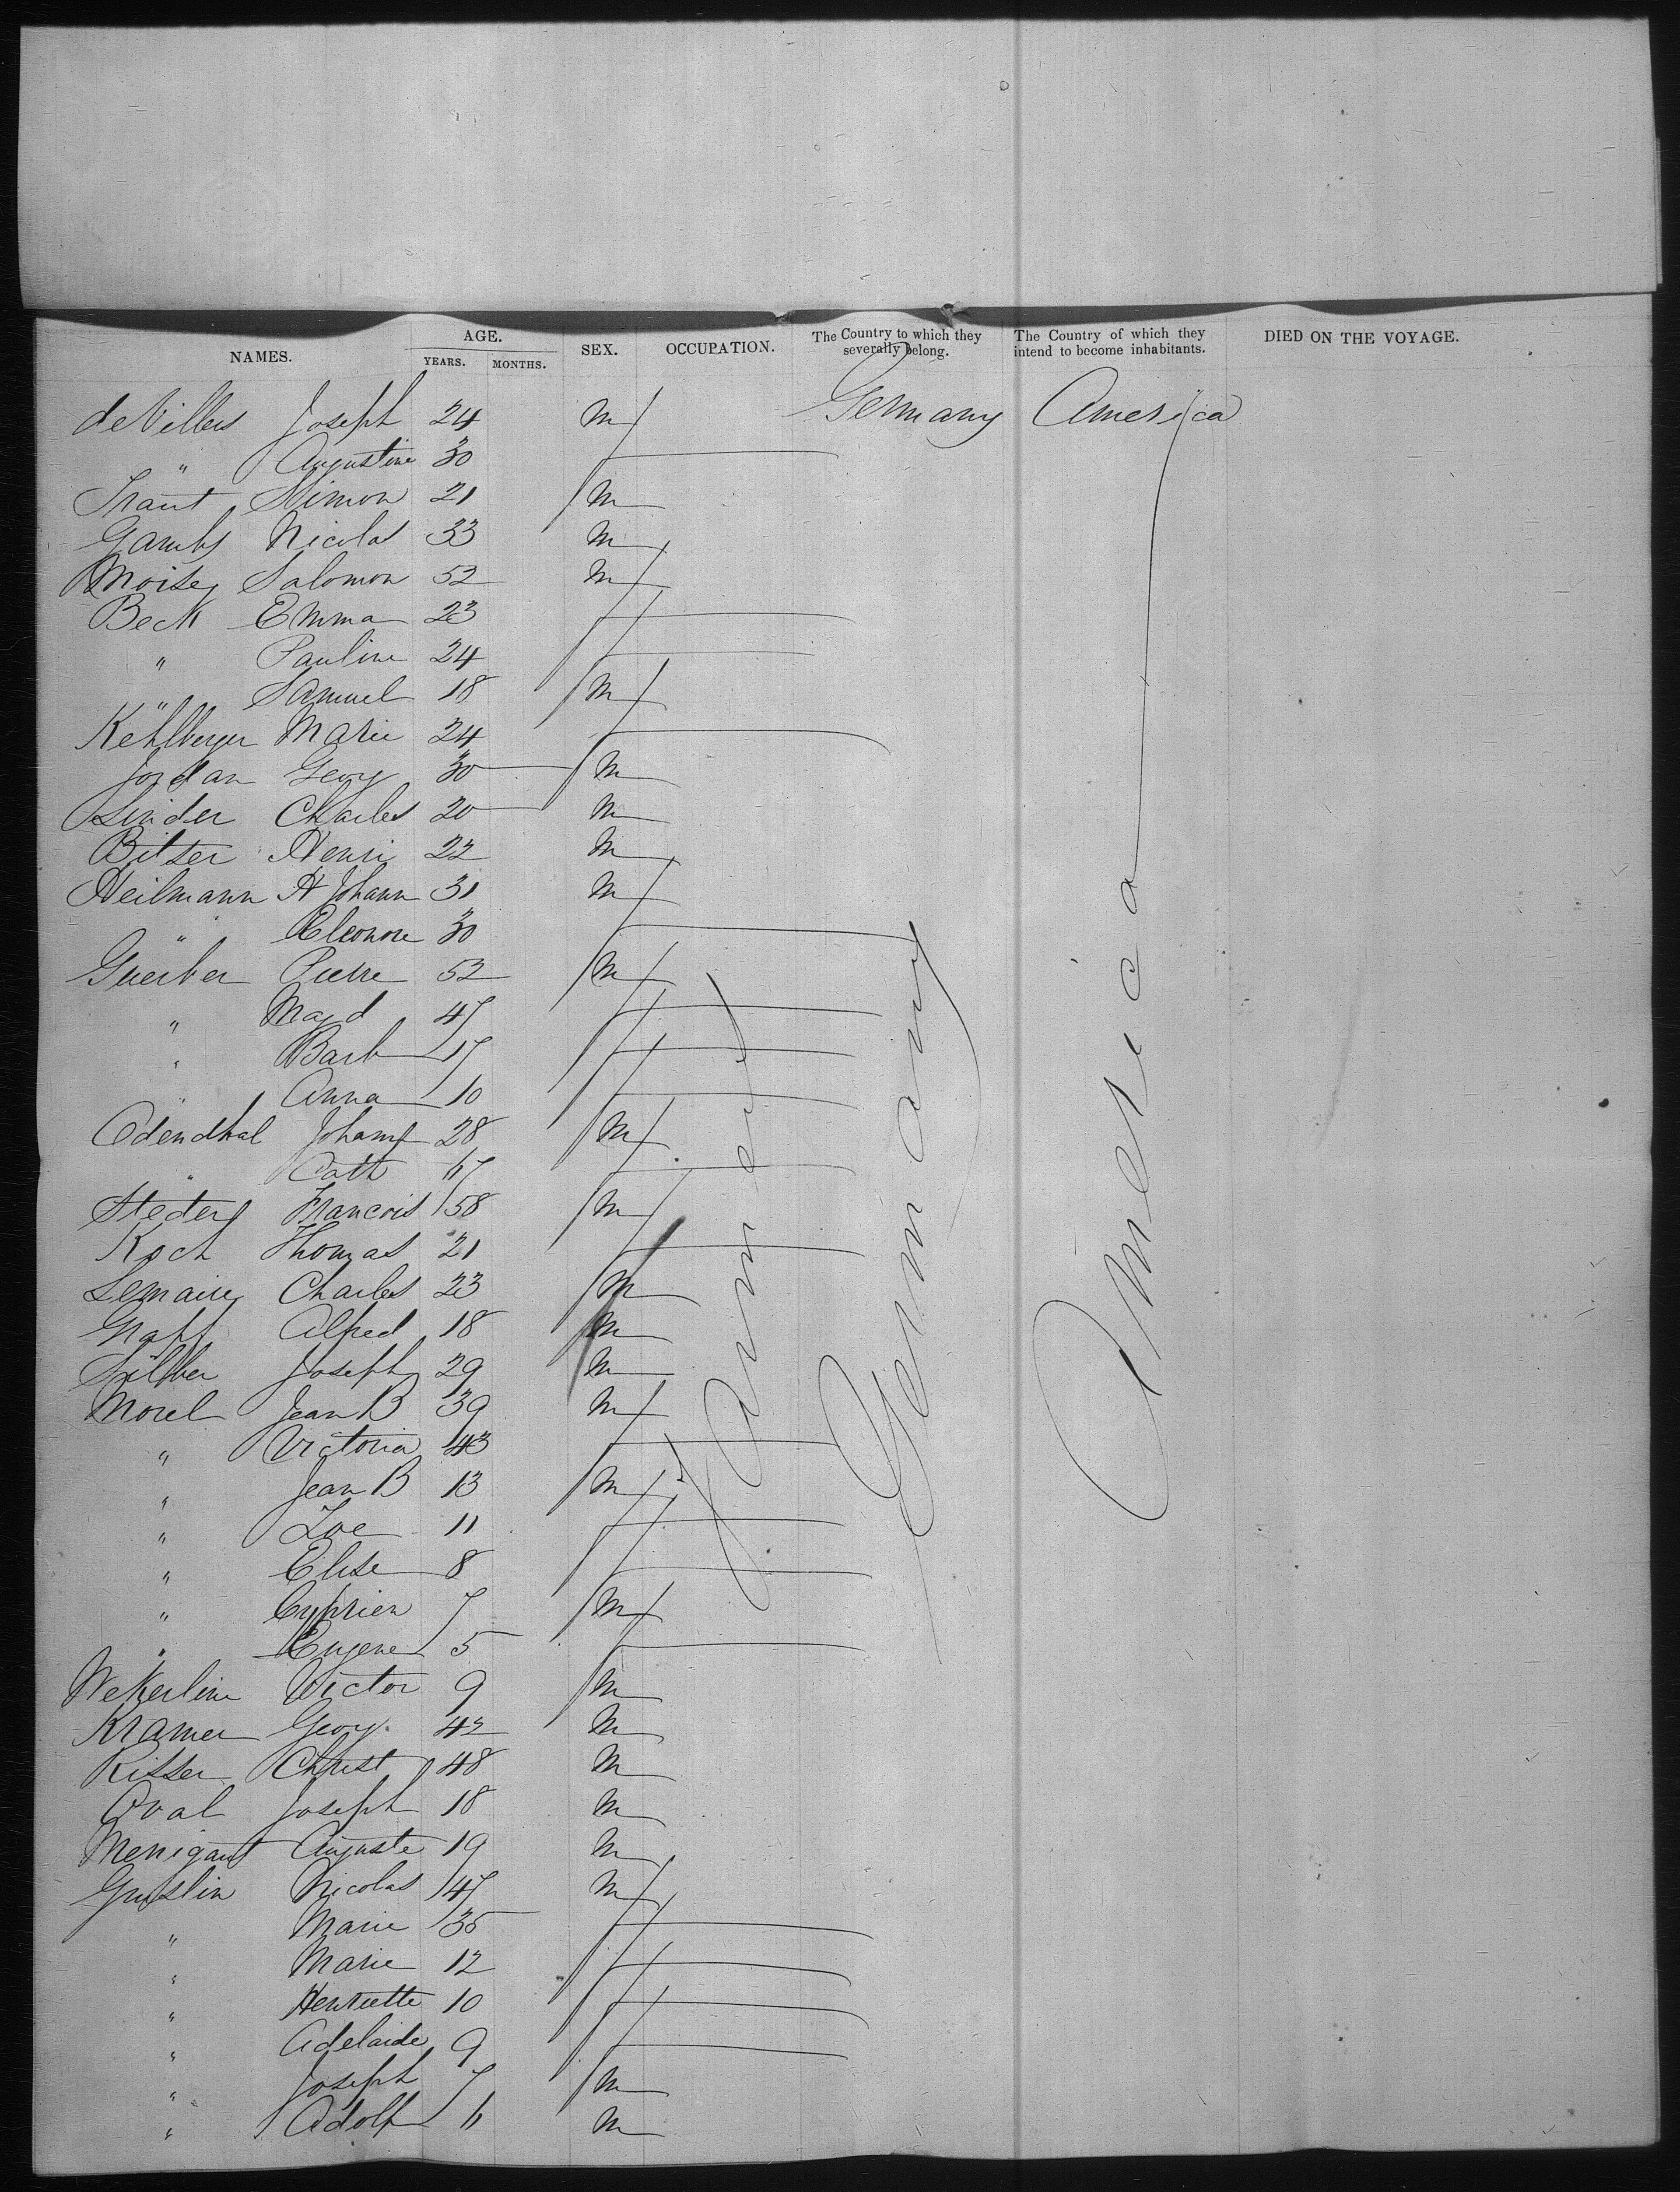 NAMES. AGE. YEARS. MONTHS. SEX. OCCUPATION. The Country to which they severally belong. The Country of which they intend to become inhabitants. DIED ON THE VOYAGE.
deVillers Joseph 24 m Germany America
" Augustine 30 f
Traut Simon 21 m
Nicolas 33 m
Moise Salomon 52 m
Beck Emma 23 f
" Pauline 24 f
" Samuel 18 m
Kehlberger Marie 24 f
Jordan Georg 30 m
Linder Charles 20 m
Bitser Henri 22 m
Heilmann H Johann 31 m
" Eleonore 30 f
Guerber Pierre 52 m
" Magd 47 f
" Barb 17 f
" Anna 10 f
Odendhal Johann 28 m
" Cath f
Francois 58 m
Koch Thomas 21 f
Lemaire Charles 23 m
Alfred 18 m
Joseph 29 m
Morel Jean B 39 m
" Victoria 43 f
" Jean B 13 m
" Zoe 11 f
" Elise 8 f
" Cyprien 7 m
" Eugene 5 f
Wekerline Victor 9 m
Kramer Georg 42 m
Risser Christ 48 m
Oval Joseph 18 m
Menigaut Auguste 19 m
Nicolas 47 m
" Marie 35 f
" Marie 12 f
" Henriette 10 f
" Adelaide 9 f
" Joseph 7 m
" Adolf m
Farmer
Germany
America